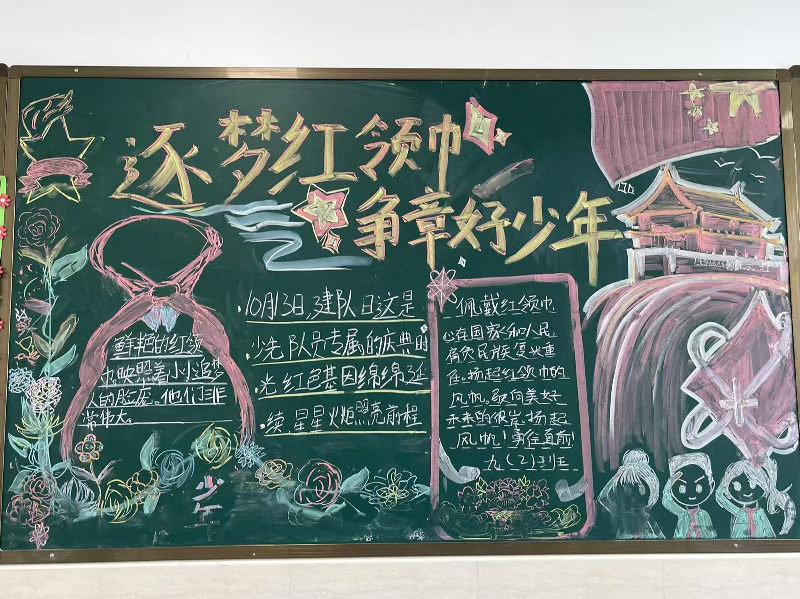 逐梦红领巾
争章好少年
鲜艳的红领
巾映照着小小追梦
人的脸庞。他们非
常伟大。
10月13日,建队日这是
少先队员专属的庆典时
光红色基因绵绵延
续星星火炬照亮前程
佩戴红领巾
心在国家和人民,
肩负民族复兴重
任。扬起红领巾的
风帆。驶向美好
未来的彼岸,扬起
风帆!勇往直前!
九(2)班
少年